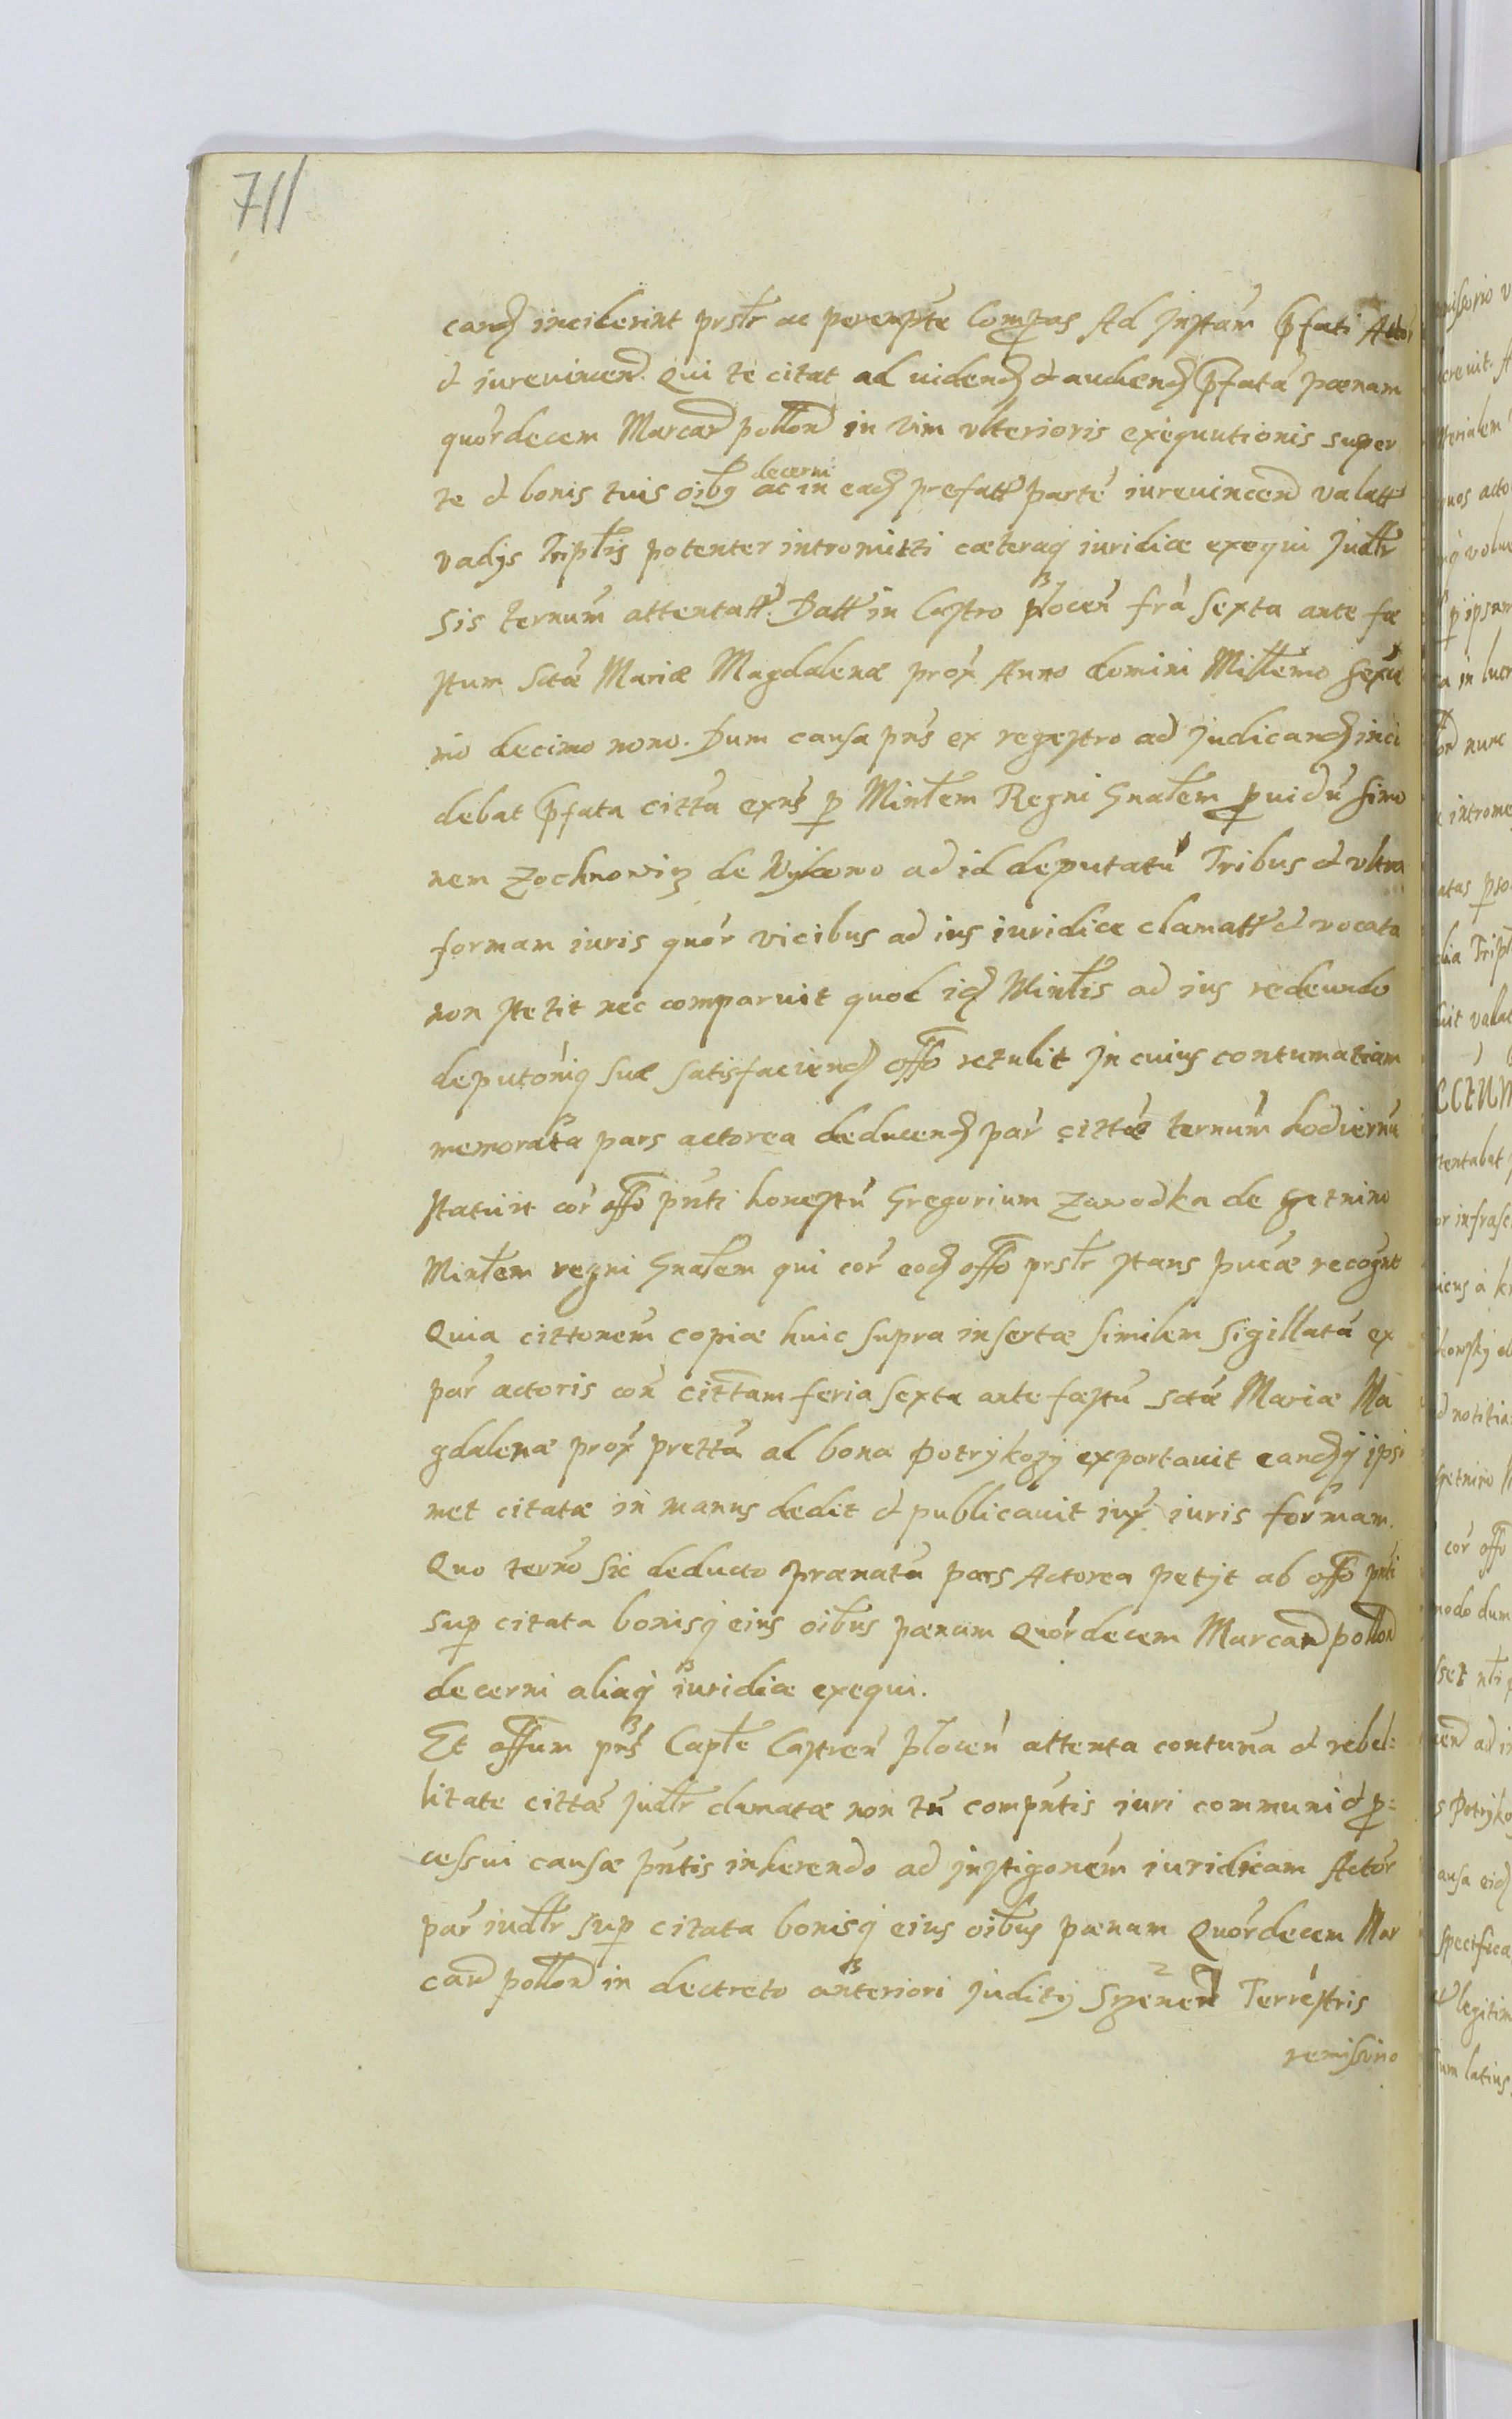 711
cand inciderint prsltr ac perempte Compas Ad Instam prfati Acto
et iurevincen. Qui te citat ad uidend et audiend prfata pœnam
quordecem Marcar pollon in vim vlterioris exequutionis super
te et bonis tuis oibq decerni ac in ead prefatt parte iurevincen valatt
vadys Triplis potenter intromitti cæteraq iuridice exequi Judltr
sis ternum attentatt. Datt in Castro plocen fra Sexta ante fæ
stum Sctæ Mariæ Magdalenæ prox Anno domini Millemo Sexte
mo decimo nono. Dum causa pns ex regestro ad Judicand inci
debat prfata citta exns p Minlem Regni Gnalem prouidu Simo
nem Zochnowicz de ad id deputatu Tribus et vltra
formam iuris quor vicibus ad ius iuridice clamatt et vocata
non stetit nec comparuit quod id Minlis ad ius redeundo
deputoniq suæ satisfaciend offo retulit In cuius contumatiam
memorata pars actorea deducend par cittæ ternum hodiernu
statuit cor offo pnti honestu Gregorium Zawodka de Setnino
Minlem regni Gnalem qui cor eod offo prsltr stans puce recogut
Quia cittonem copiæ huic supra insertæ similem sigillata ex
par actoris con cittam feria sexta ante festu sctæ Mariæ Ma
gdalenæ prox pretta ad bona Potrykozy exportauit eandq ipsi
met citatæ in manus dedit et publicauit iux iuris formam.
Quo terno sic deducto prænata pars Actorea petyt ab offo pnti
sup citata bonisq eius oibus pænam Quordecem Marcar pollon
decerni aliaq iuridice exequi.
Et offum pns Caple Castren plocen attenta contuma et rebel=
litate cittæ Judltr clamatæ non tn compntis iuri communi et p=
cessui causæ pntis inherendo ad instigonem iuridicam Actor
par iudltr sup citata bonisq eius oibus pænam Quordecem Mar
car pollon in decreto anteriori Judity Terrestris
remissino